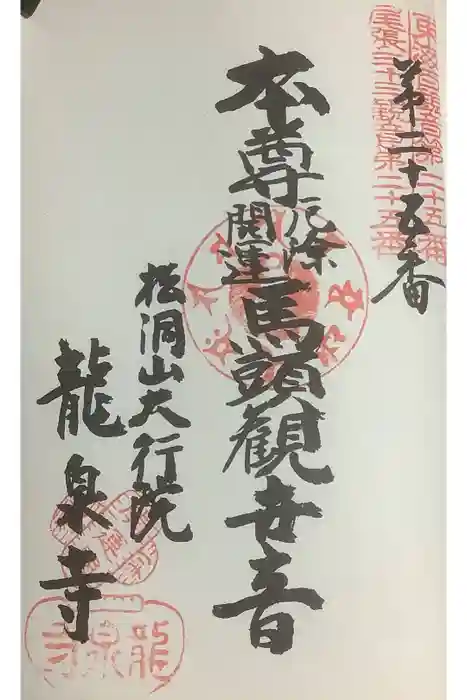 第二十五番
尾張三十三観音第二十五番
本尊
厄除
開運
馬頭観世音
松洞山大行院
龍泉寺
龍泉寺